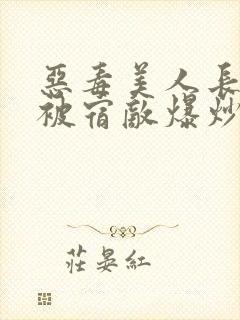 惡毒美人長
被宿敵爆炒
莊晏紅